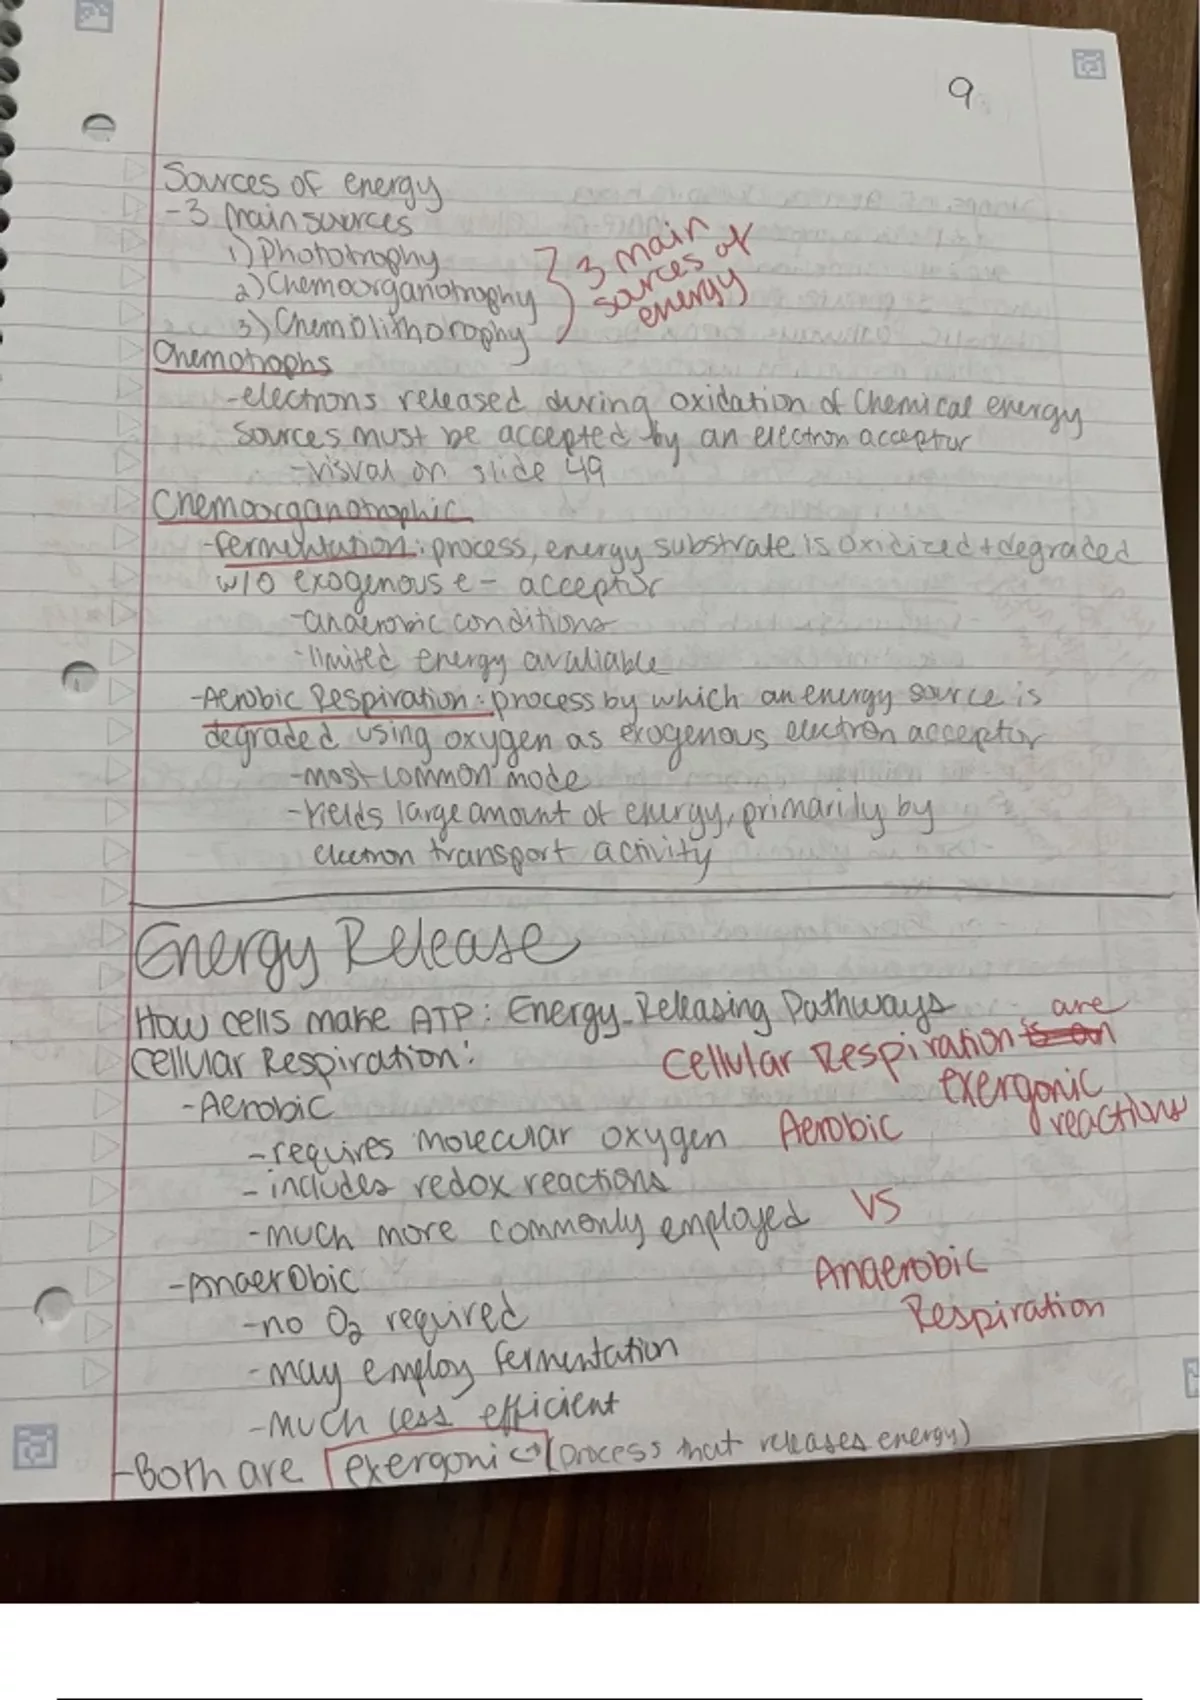 9
Sources of energy
-3 main sources
1) Phototrophy
2) Chemoorganotrophy
3) Chemolithorophy
3 main
sources of
energy
Chemotrophs
-electrons released during oxidation of chemical energy
sources must be accepted by an electron acceptor
-visual on slide 49
Chemoorganotrophic
-fermentation: process, energy substrate is oxidized + degraded
w/o exogenous e- acceptor
-anaerobic conditions
-limited energy avaliable
-Aerobic Respiration: process by which an energy source is
degraded using oxygen as exogenous electron acceptor
-most common mode
-Yields large amount of energy, primarily by
electron transport activity
Energy Release
How cells make ATP: Energy-Releasing Pathways
Cellular Respiration:
Cellular Respiration are
exergonic
reactions
-Aerobic
-requires molecular oxygen
-includes redox reactions
-much more commonly employed
Aerobic
VS
Anaerobic
Respiration
-Anaerobic
-no O2 required
-may employ fermentation
-Much less efficient
-Both are exergonic→(process that releases energy)